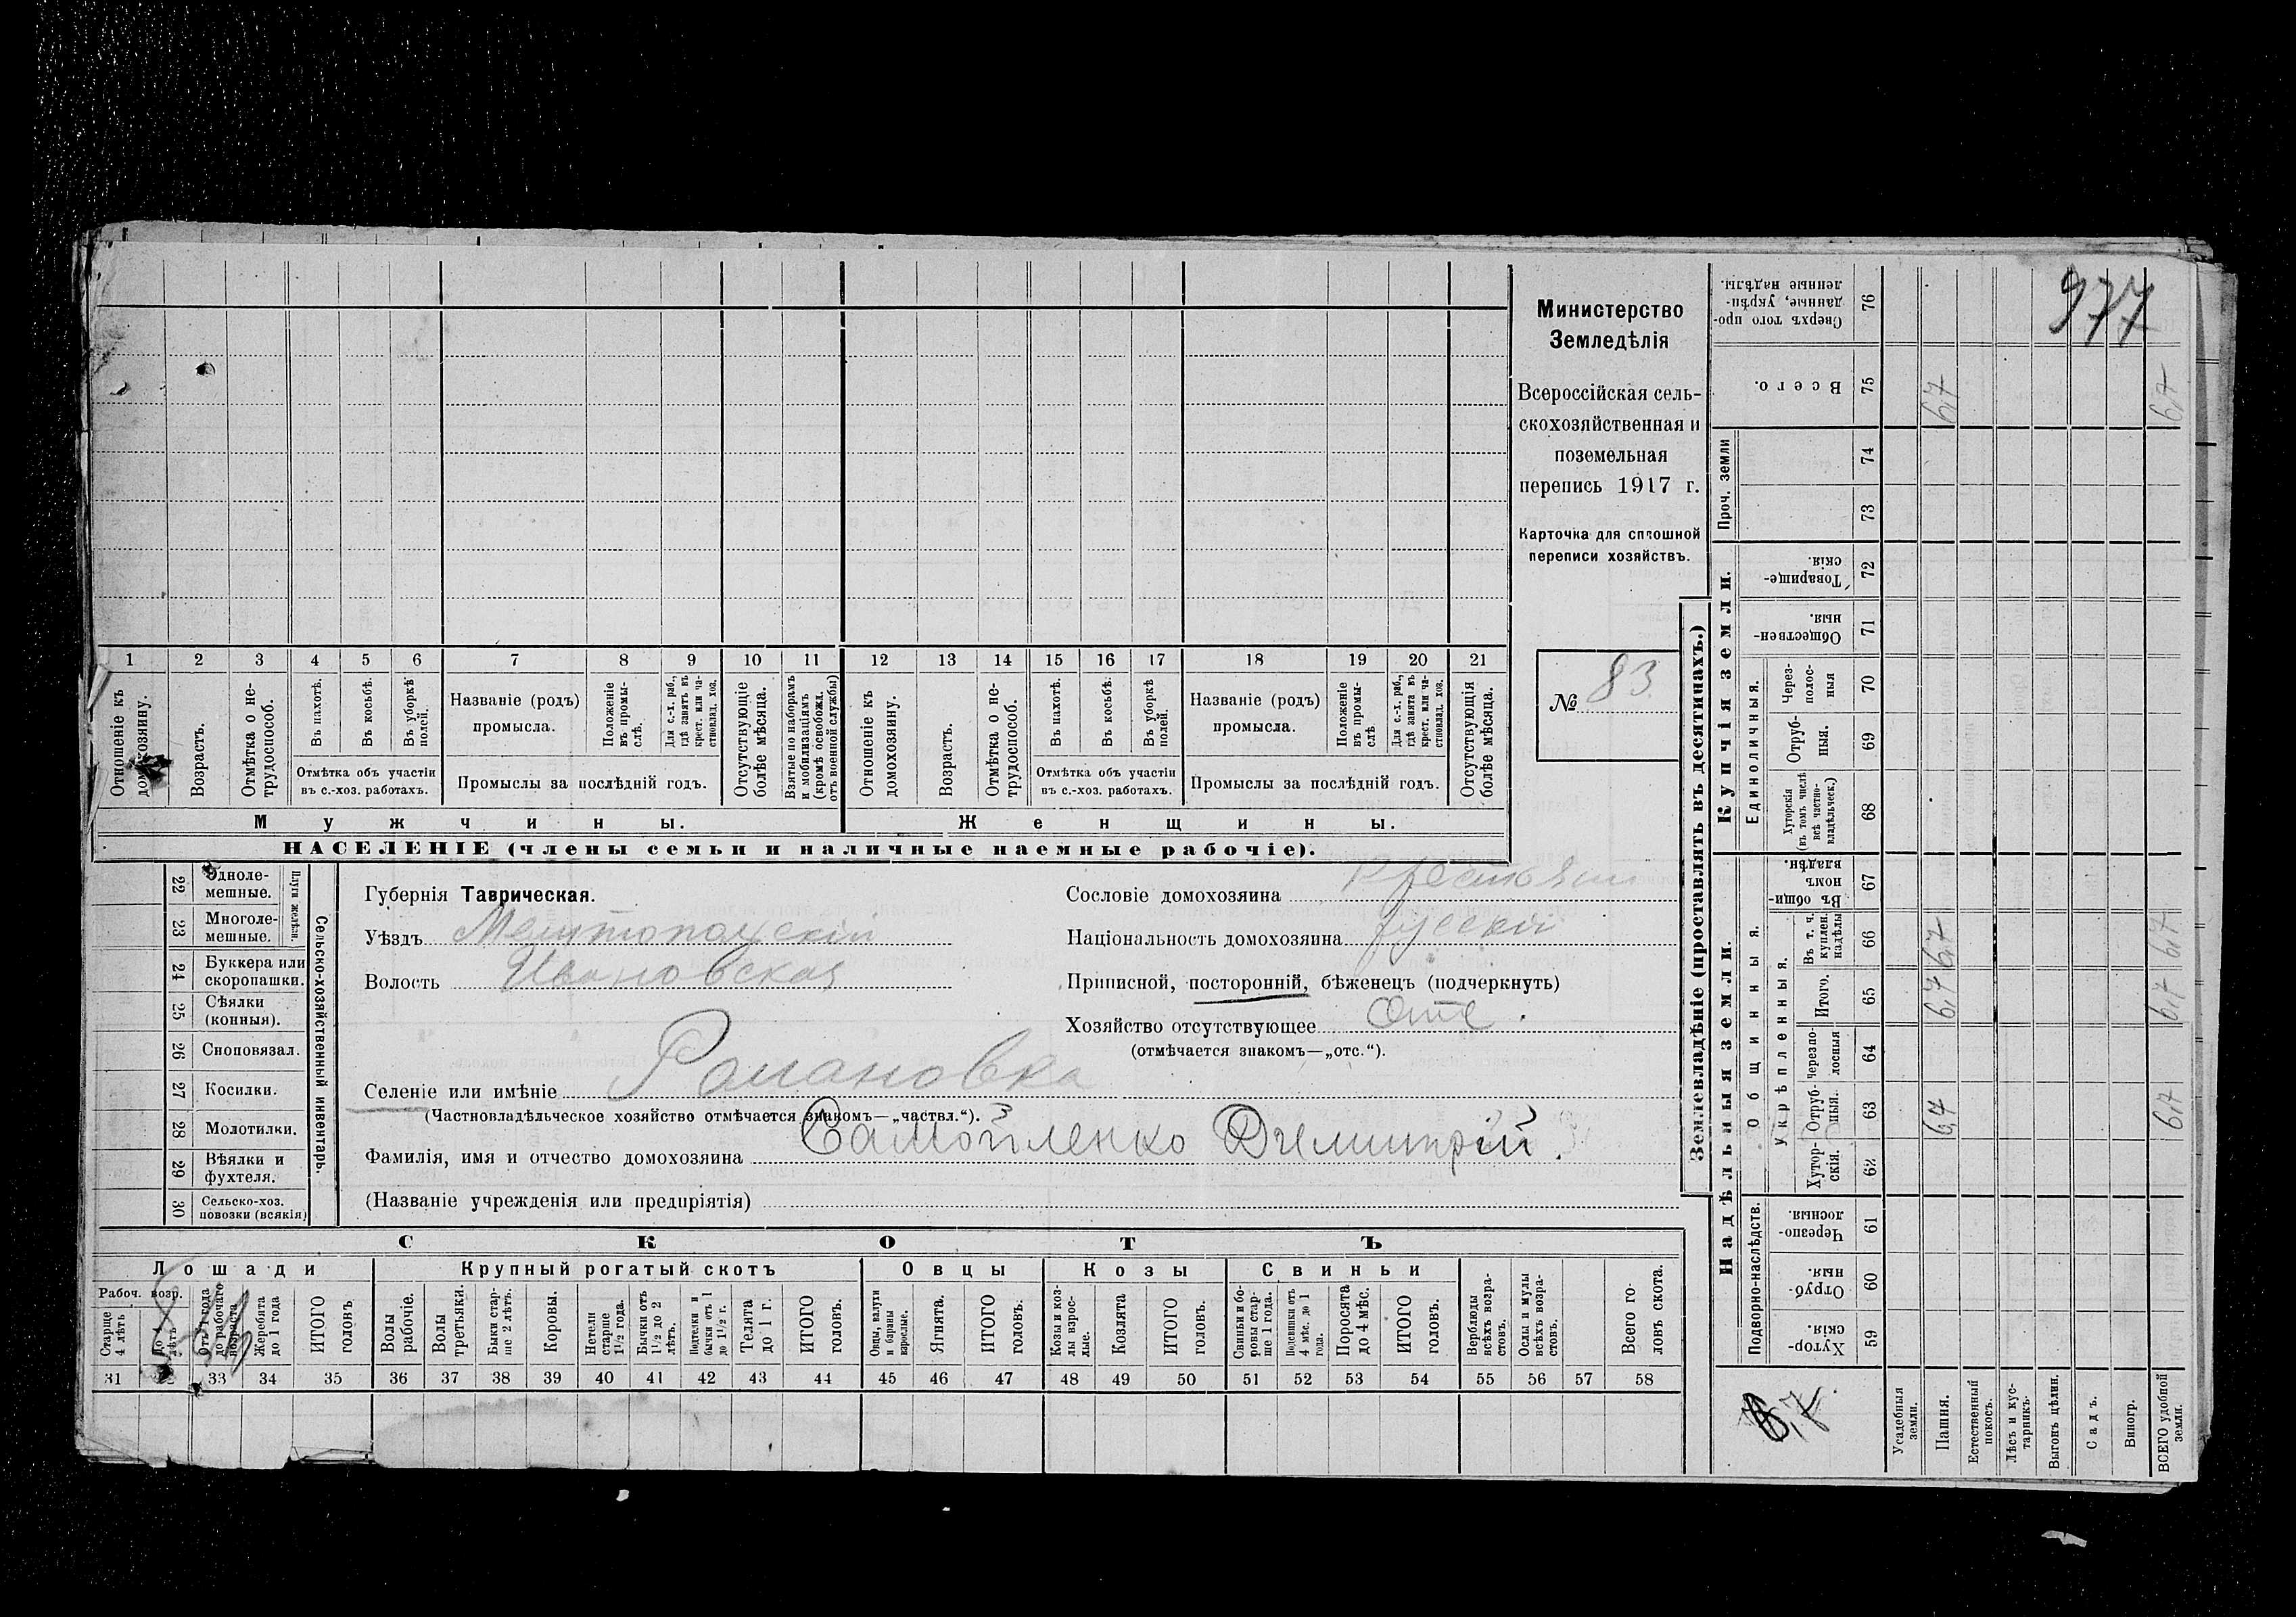 Министерство
Земледѣлія
Всероссійская сель-
скохозяйственная и
поземельная
перепись 1917 г.
Карточка для сплошной
переписи хозяйствъ.
№ 83
1 2 3 4 5 6 7 8 9 10 11 12 13 14 15 16 17 18 19 20 21
Отношеніе къ домохозяину.
Возрастъ.
Отмѣтка о не-
трудоспособ.
Въ пахотѣ.
Въ косьбѣ.
Въ уборкѣ
полей.
Отмѣтка объ участіи
въ с.-хоз. работахъ.
Названіе (родъ)
промысла.
Положеніе
въ промы-
слѣ.
Для с.-х. раб.,
гдѣ занятъ въ
крест. или ча-
стновлад. хоз.
Промыслы за послѣдній годъ.
Отсутствующіе
болѣе мѣсяца.
Взятые по наборамъ
и мобилизаціямъ
(кромѣ освобожд.
отъ военной службы)
Отношеніе къ
домохозяину.
Возрастъ.
Отмѣтка о не-
трудоспособ.
Въ пахотѣ.
Въ косьбѣ.
Въ уборкѣ
полей.
Отмѣтка объ участіи
въ с.-хоз. работахъ.
Названіе (родъ)
промысла.
Положеніе
въ промы-
слѣ
Для с.-х. раб.,
гдѣ занята въ
крест. или ча-
стновлад. хоз.
Промыслы за послѣдній годъ.
Отсутствующія
болѣе мѣсяца.
Мужчины.
Женщины.
НАСЕЛЕНІЕ (члены семьи и наличные наемные рабочіе).
Сельско-хозяйственный инвентарь.
Плуги желѣзн.
22 Однолемешные.
23 Многоле-
мешные.
24 Буккера или
скоропашки.
25 Сѣялки
(конныя).
26 Сноповязал.
27 Косилки.
28 Молотилки.
29 Вѣялки и
фухтеля.
30 Сельско-хоз.
повозки (всякія)
Губернія Таврическая.
Уѣздъ Мелитопольскій
Волость Ивановская
Селеніе или имѣніе Романовка
(Частновладѣльческое хозяйство отмѣчается знакомъ—„частвл.“).
Фамилія, имя и отчество домохозяина Самойленко Дмитрій
(Названіе учрежденія или предпріятія)
Сословіе домохозяина Крестьян
Національность домохозяина русскій
Приписной, посторонній, бѣженецъ (подчеркнуть)
Хозяйство отсутствующее Отс.
(отмѣчается знакомъ—„отс.“).
СКОТЪ
Лошади
Крупный рогатый скотъ
Овцы
Козы
Свиньи
Рабоч. возр.
Старше
4 лѣтъ
До 4
лѣтъ
Отъ 1 года
до рабочаго
возраста
Жеребята
до 1 года
ИТОГО
головъ
Волы
рабочіе.
Волы
третьяки.
Быки стар-
ше 2 лѣтъ.
Коровы.
Нетели
старше
1½ года.
Бычки отъ
1½ до 2
лѣтъ.
Подтелки и
бычки отъ 1
до 1½ г.
Телята
до 1 г.
ИТОГО
головъ.
Овцы, валухи
и бараны
взрослые.
Ягнята.
ИТОГО
головъ.
Козы и коз-
лы взрос-
лые.
Козлята
ИТОГО
головъ.
Свиньи и бо-
ровы стар-
ше 1 года.
Подсвинки отъ
4 мѣс. до 1
года.
Поросята
до 4 мѣс.
ИТОГО
головъ.
Верблюды
всѣхъ возра-
стовъ.
Ослы и мулы
всѣхъ возра-
стовъ.
Всего го-
ловъ скота.
31 33 34 35 36 37 38 39 40 41 42 43 44 45 46 47 48 49 50 51 52 53 54 55 56 57 58
Землевладѣніе (проставлять въ десятинахъ.)
Надѣльныя земли.
Купчія земли.
Проч. земли
Подворно-наслѣдств.
Общинныя.
Укрѣпленныя.
Единоличныя.
Сверхъ того про-
данные, укрѣп-
ленные надѣлы. 76
Всего. 75
74
73
Товарище-
скія. 72
Обществен-
ныя. 71
Через-
полос-
ныя 70
Отруб-
ныя. 69
Хуторскія
(въ томъ числѣ
всѣ частно-
владѣльческ.) 68
Въ общин-
номъ
владѣн. 67
Въ т. ч.
куплен.
надѣлы 66
Итого. 65
Черезпо-
лосныя 64
Отруб-
ныя. 63
Хутор-
скія. 62
Черезпо-
лосныя. 61
Отруб-
ныя. 60
Хутор-
скія 59
Усадебныя
земли.
Пашня. 6,7 6,7 6,7 6,7
Естественный
покосъ.
Лѣсъ и кус-
тарникъ.
Выгонъ цѣлин.
Садъ.
Виногр.
ВСЕГО удобной
земли. 6,7 6,7 6,7 6,7
977
6,7